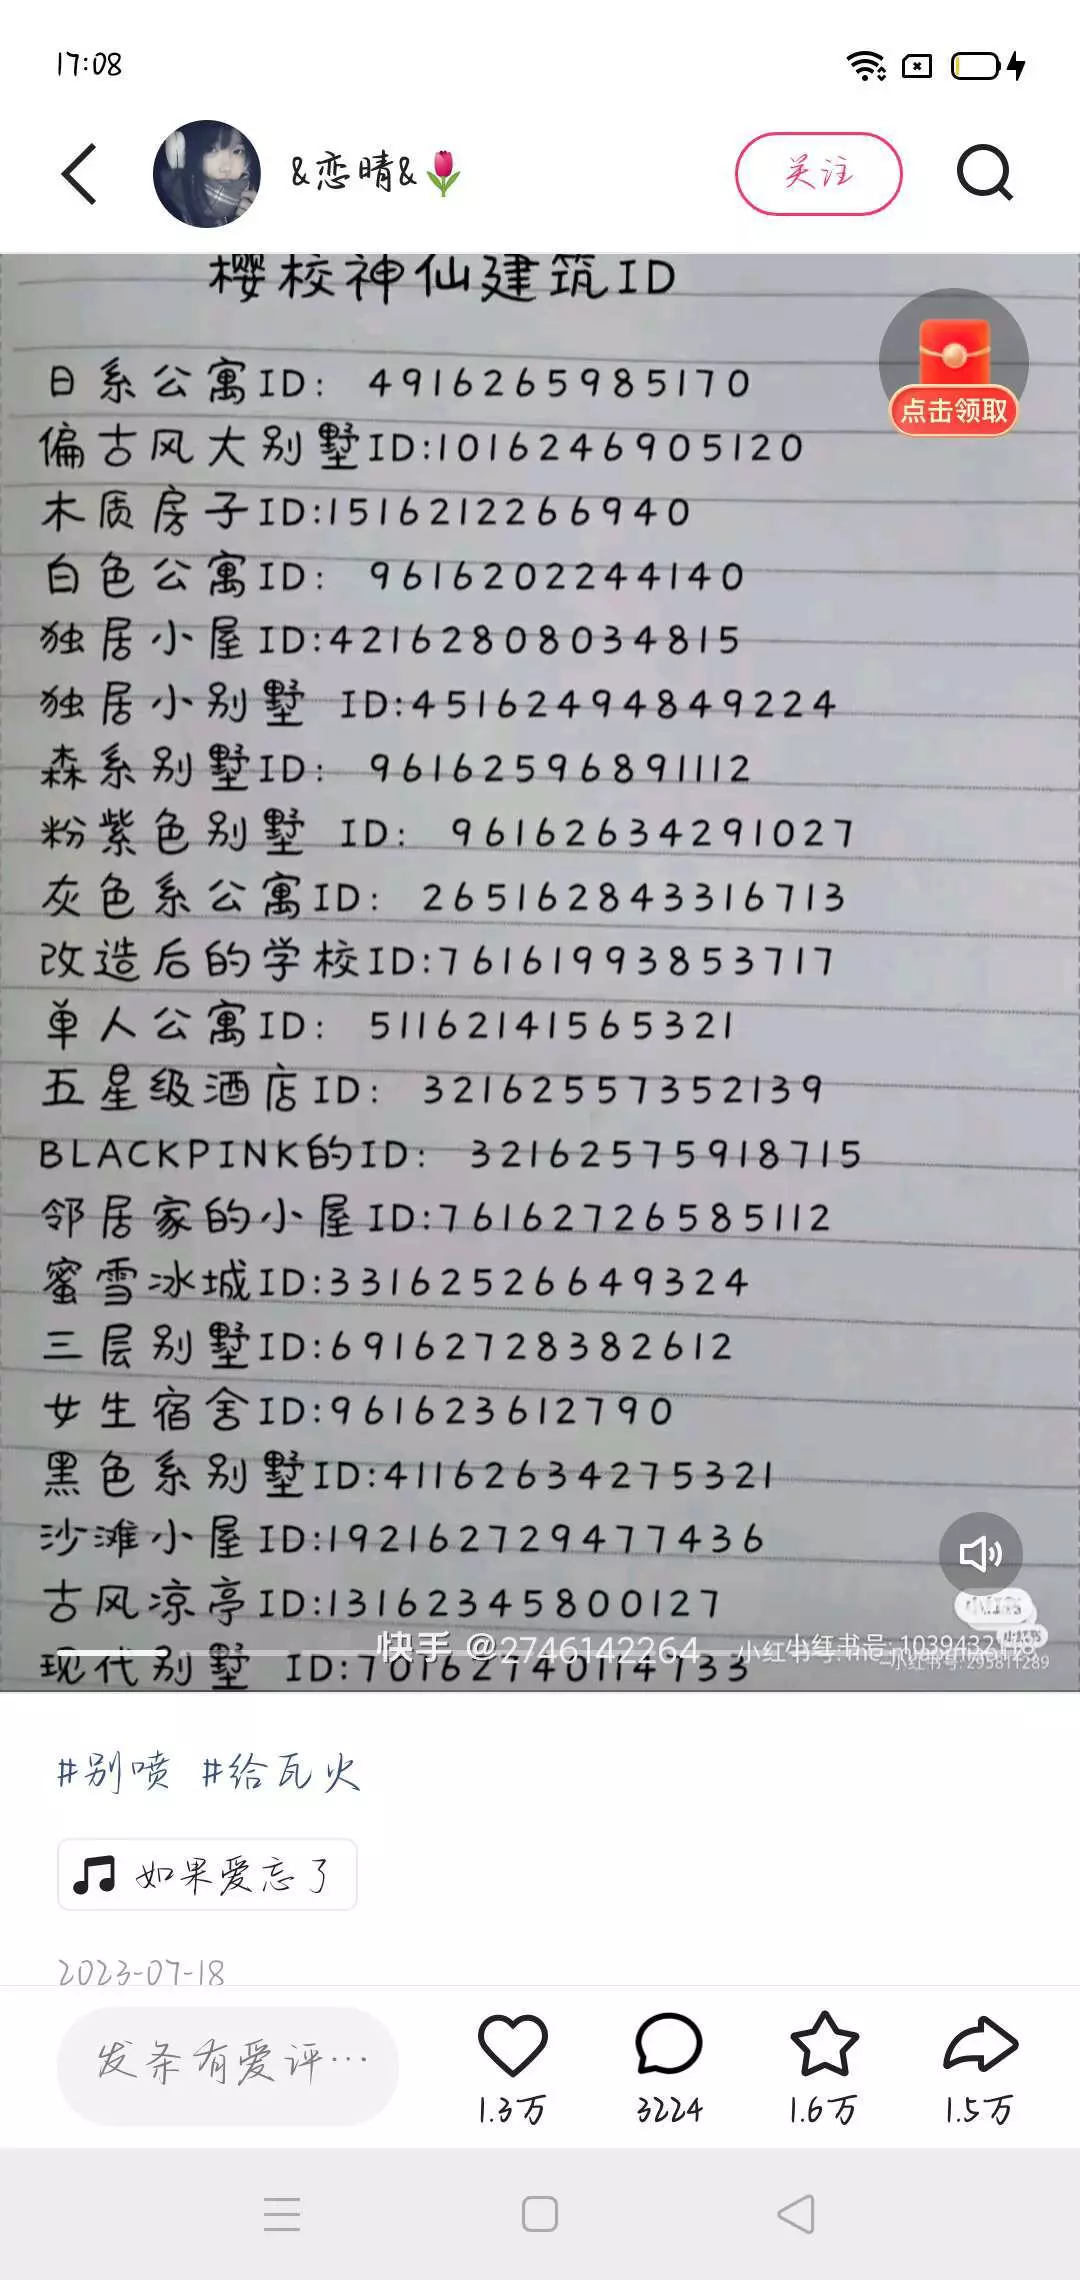 17:08
&恋晴&🌷
关注
樱校神仙建筑ID
点击领取
日系公寓ID: 4916265985170
偏古风大别墅ID:1016246905120
木质房子ID:1516212266940
白色公寓ID: 9616202244140
独居小屋ID:42162808034815
独居小别墅 ID:45162494849224
森系别墅ID: 96162596891112
粉紫色别墅 ID: 96162634291027
灰色系公寓ID: 265162843316713
改造后的学校ID:76161993853717
单人公寓ID: 51162141565321
五星级酒店ID: 32162557352139
BLACKPINK的ID: 32162575918715
邻居家的小屋ID:76162726585112
蜜雪冰城ID:33162526649324
三层别墅ID:69162728382612
女生宿舍ID:961623612790
黑色系别墅ID:41162634275321
沙滩小屋ID:192162729477436
古风凉亭ID:13162345800127
现代别墅 ID:70162740114733
快手 @2746142264
小红书号:
小红书号: 1039432198
小红书号: 295811289
#别喷 #给瓦火
如果爱忘了
2023-07-18
发条有爱评…
1.3万
3224
1.6万
1.5万